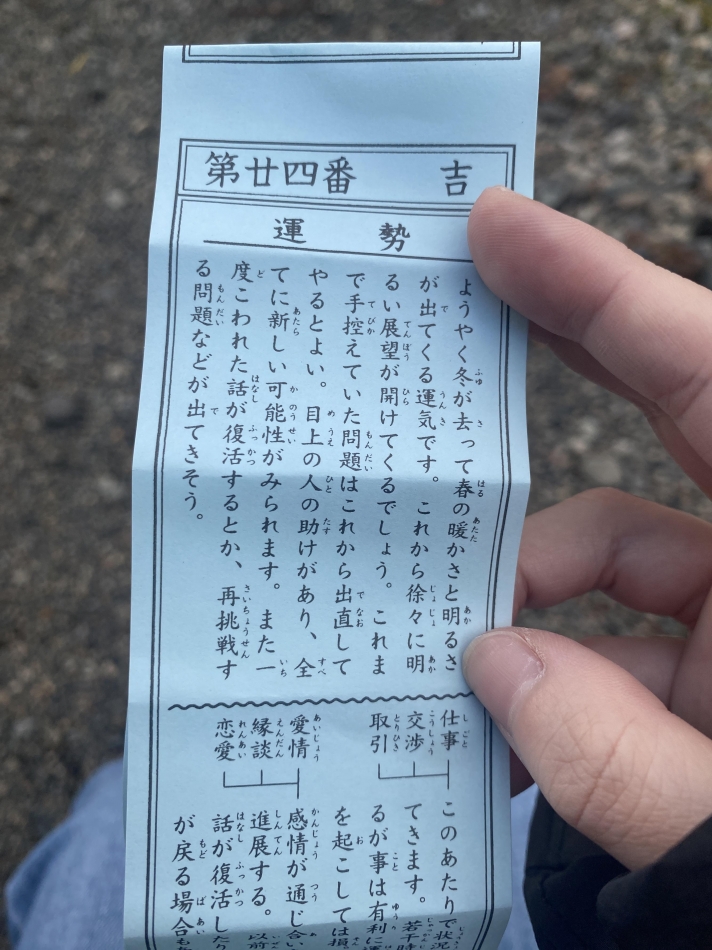 第廿四番　吉
運勢
ようやく冬が去って春の暖かさと明るさ
が出てくる運気です。これから徐々に明
るい展望が開けてくるでしょう。これま
で手控えていた問題はこれから出直して
やるとよい。目上の人の助けがあり、全
てに新しい可能性がみられます。また一
度こわれた話が復活するとか、再挑戦す
る問題などが出てきそう。
仕事
交渉
取引
このあたりで状況
てきます。若干時
るが事は有利に
を起こしては損
愛情
縁談
恋愛
感情が通じ合い
進展する。以前
話が復活したり
が戻る場合も